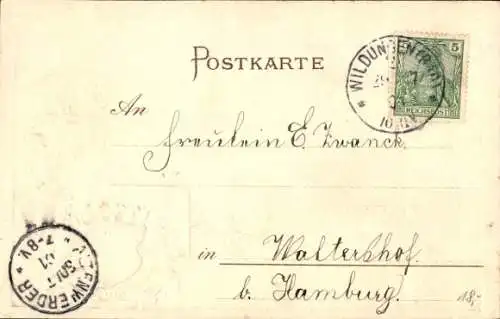 POSTKARTE
WILDUNGEN
5
REICHSPOST
An
Fräulein E. Zwanck.
in Waltershof
b. Hamburg.
18,-
ENWERDER
7-8V
01